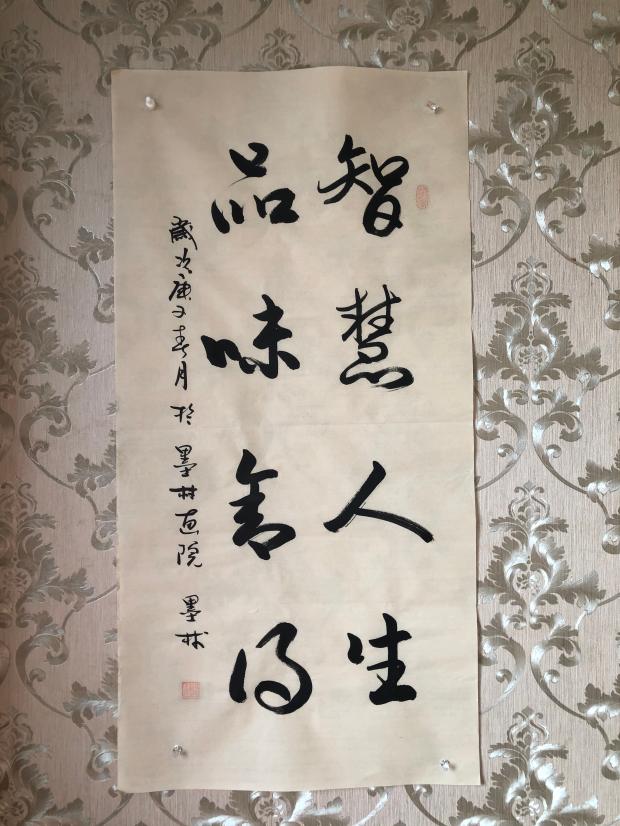 智慧人生
品味舍得
歲次庚子春月於墨林画院 墨林